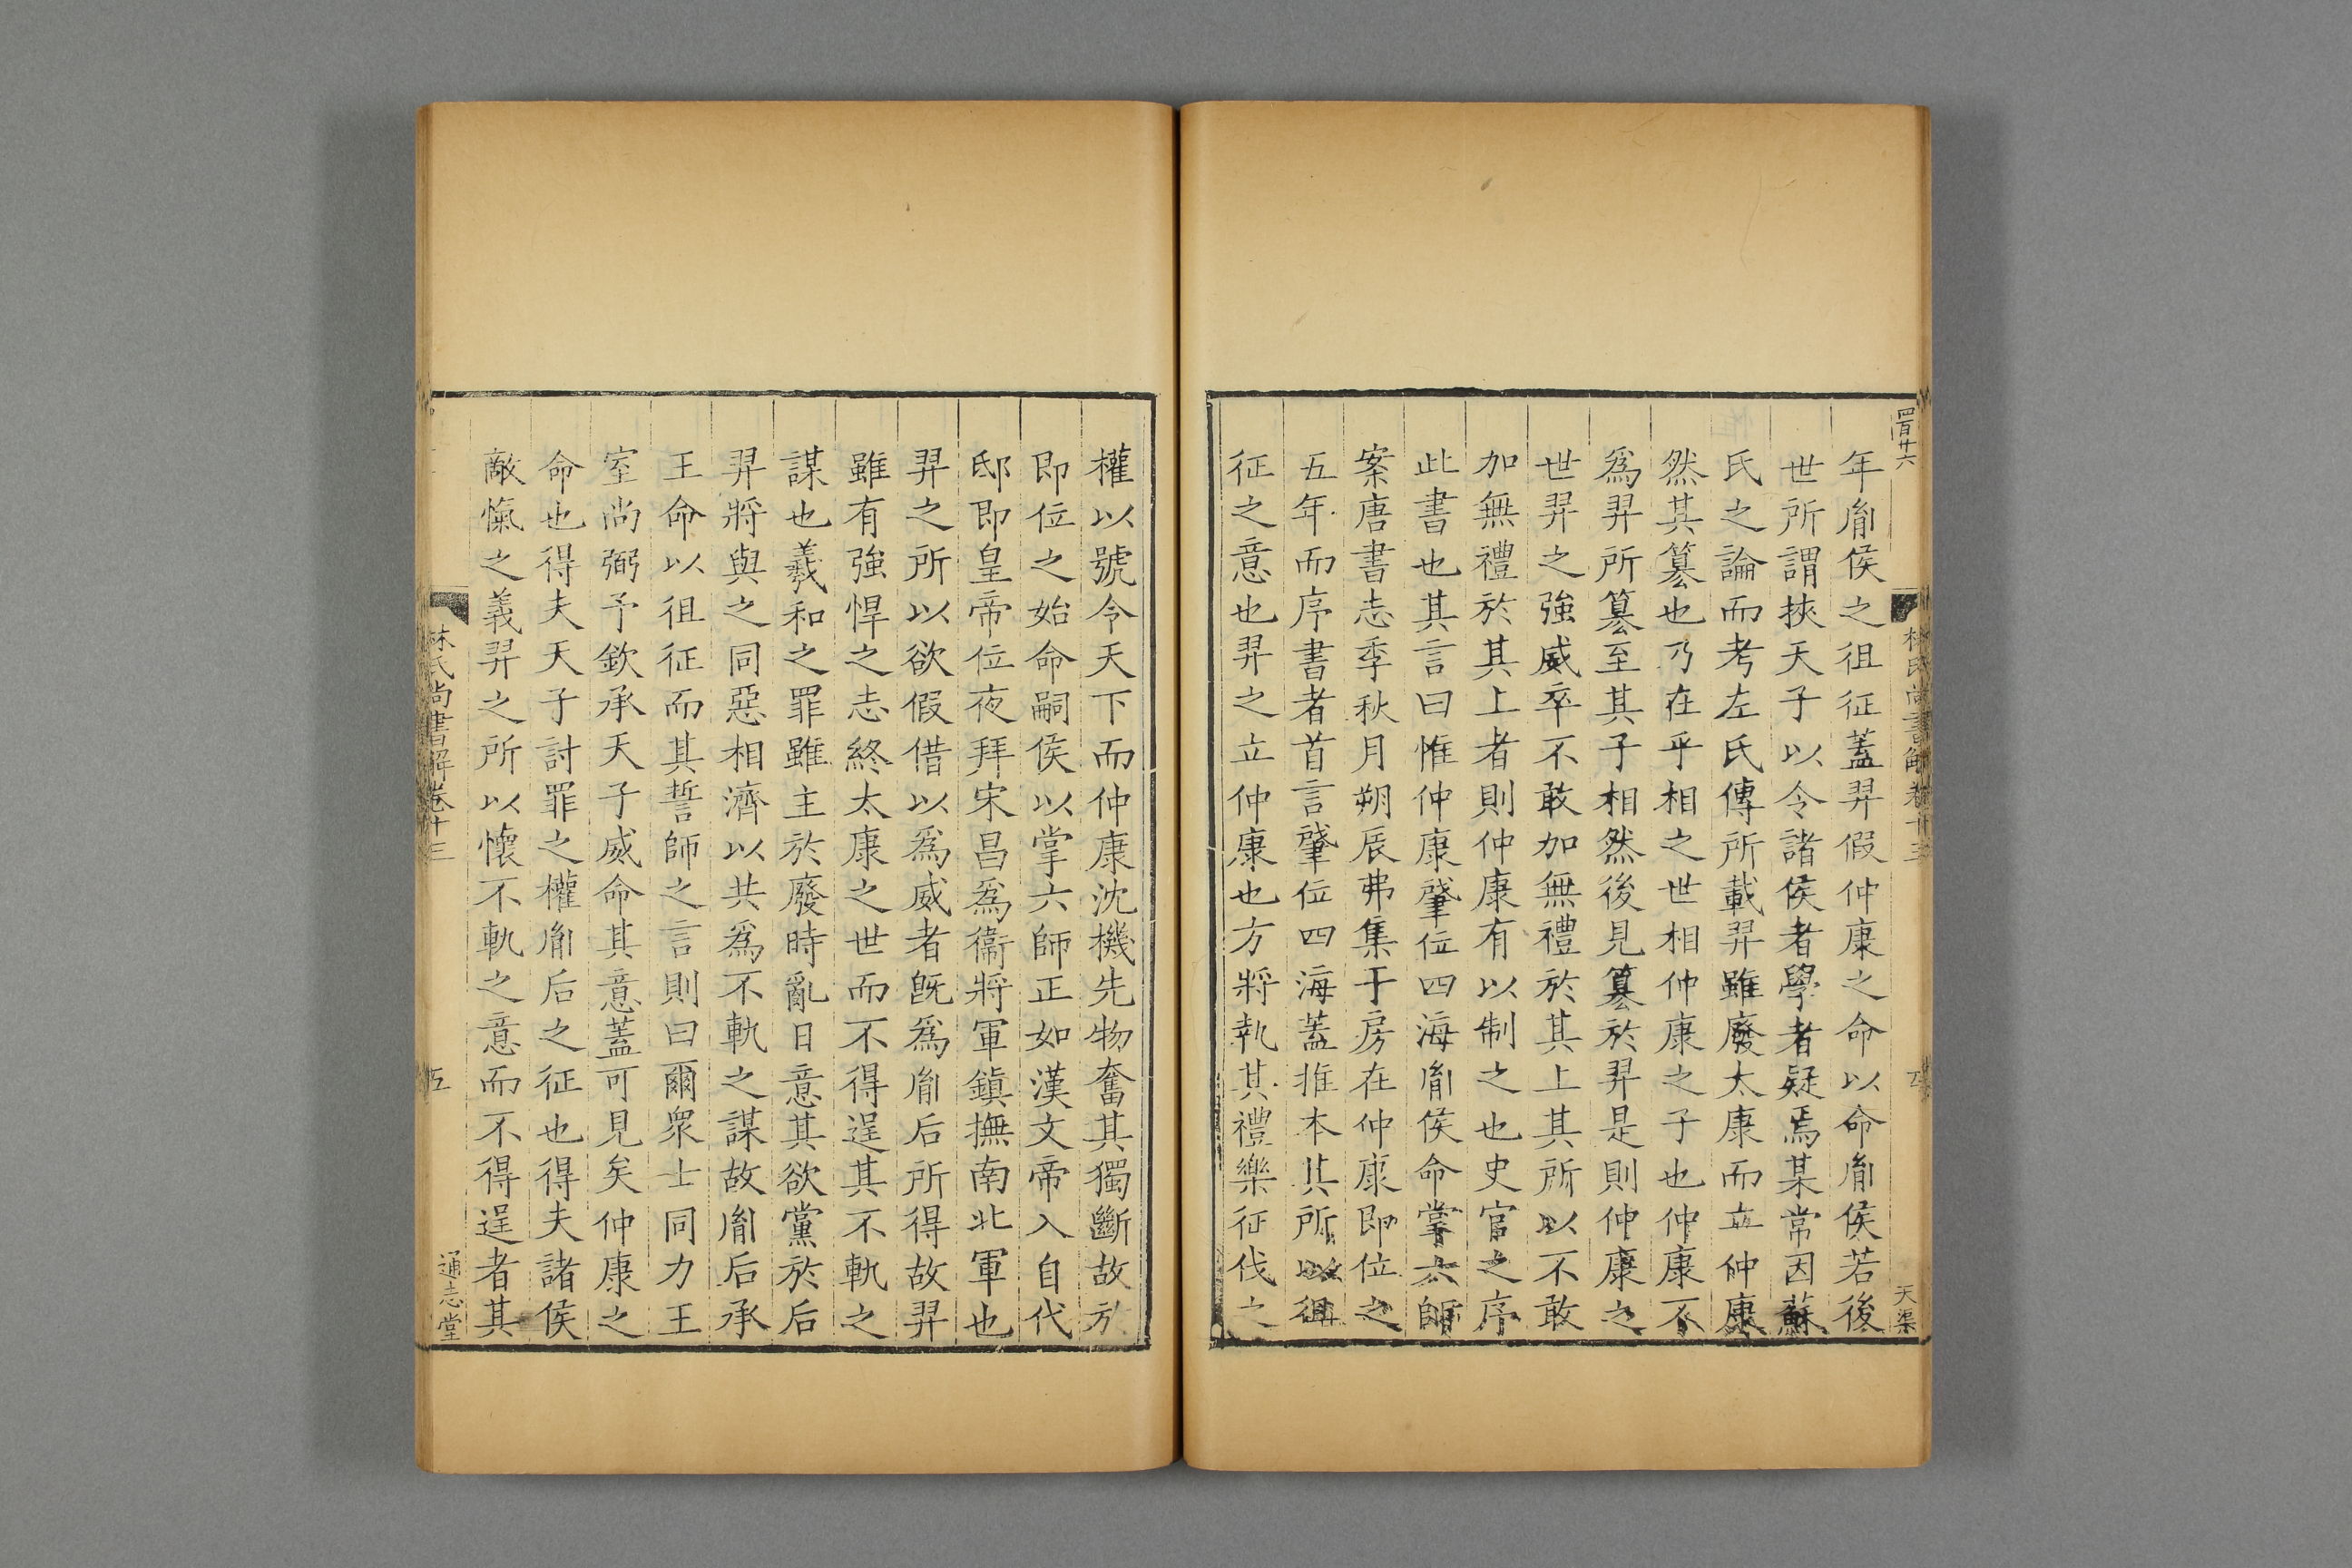 年胤侯之徂征蓋羿假仲康之命以命胤侯若後
世所謂挾天子以令諸侯者學者疑焉某常因蘇
氏之論而考左氏傳所載羿雖廢太康而立仲康
然其簒也乃在乎相之世相仲康之子也仲康不
爲羿所簒至其子相然後見簒於羿是則仲康之
世羿之強威卒不敢加無禮於其上其所以不敢
加無禮於其上者則仲康有以制之也史官之序
此書也其言曰惟仲康肇位四海胤侯命掌六師
案唐書志季秋月朔辰弗集于房在仲康即位之
五年而序書者首言肇位四海蓋推本其所以徂
征之意也羿之立仲康也方將執其禮樂征伐之
權以號令天下而仲康沈機先物奮其獨斷故於
即位之始命嗣侯以掌六師正如漢文帝入自代
邸即皇帝位夜拜宋昌爲衞將軍鎭撫南北軍也
羿之所以欲假借以爲威者旣爲胤后所得故羿
雖有強悍之志終太康之世而不得逞其不軌之
謀也羲和之罪雖主於廢時亂日意其欲黨於后
羿將與之同惡相濟以共爲不軌之謀故胤后承
王命以徂征而其誓師之言則曰爾衆士同力王
室尚弼予欽承天子威命其意蓋可見矣仲康之
命也得夫天子討罪之權胤后之征也得夫諸侯
敵愾之義羿之所以懷不軌之意而不得逞者其
林氏尚書解卷十三
五
通志堂